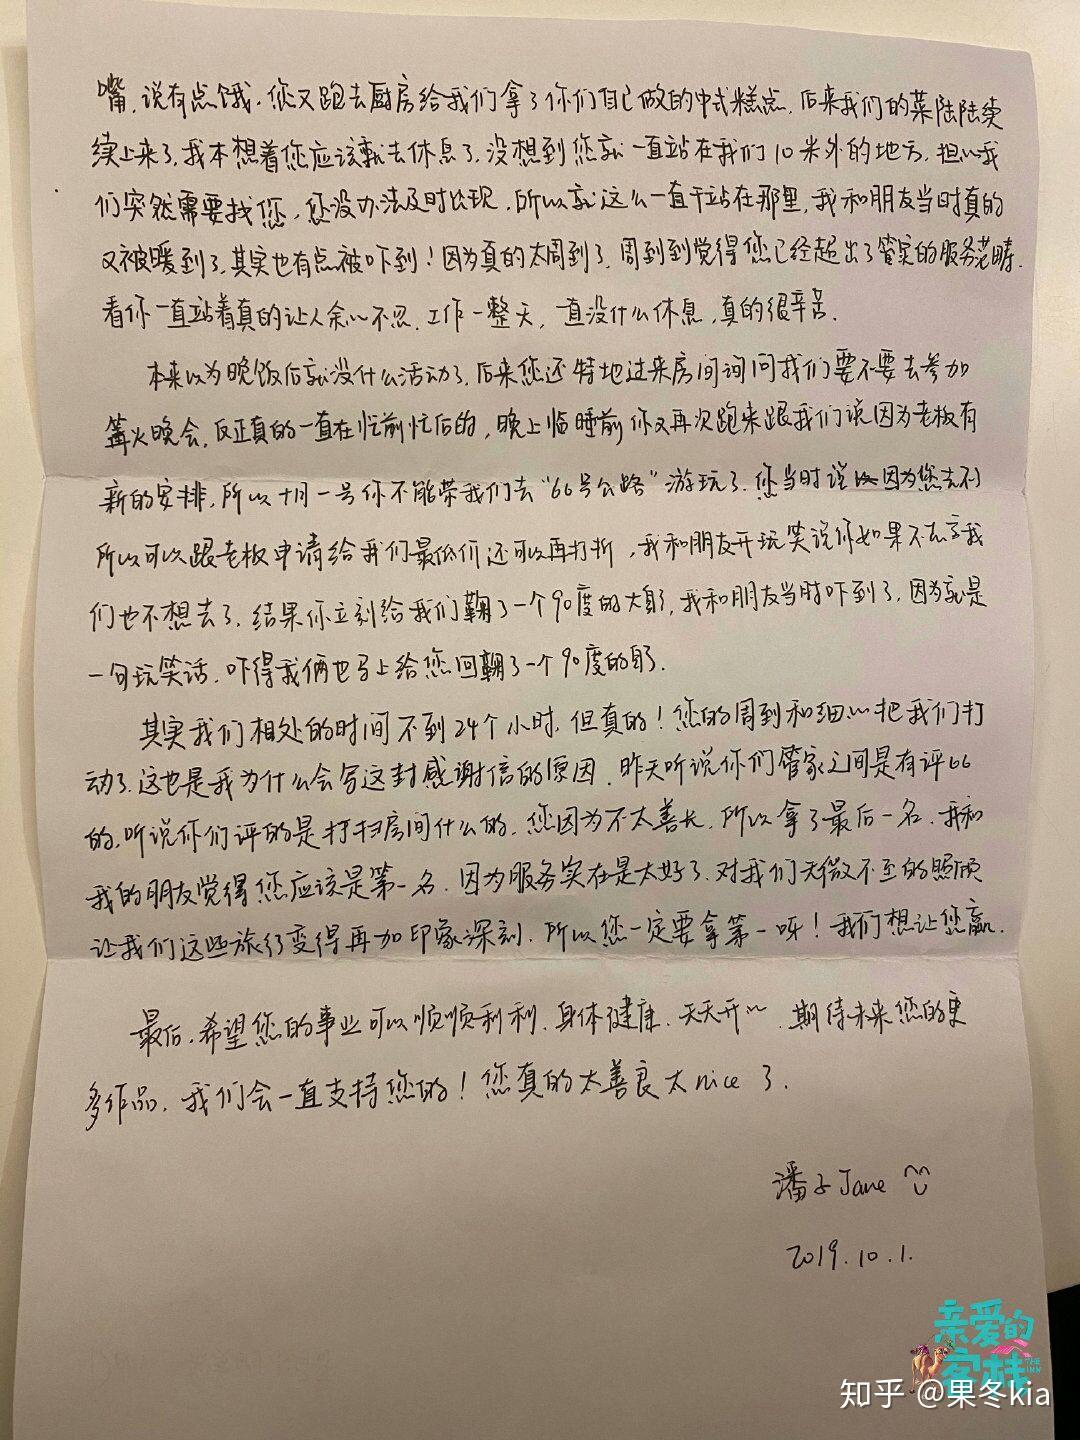 嘴，说有点饿，您又跑去厨房给我们拿了你们自己做的中式糕点，后来我们的菜陆陆续
续上来了，我本想着您应该就去休息了，没想到您就一直站在我们10米外的地方，担心我
们突然需要找您，您没办法及时出现，所以就这么一直干站在那里，我和朋友当时真的
又被暖到了，其实也有点被吓到！因为真的太周到了，周到到觉得您已经超出了管家的服务范畴，
看你一直站着真的让人余心不忍，工作一整天，一直没什么休息，真的很辛苦。
本来以为晚饭后就没什么活动了，后来您还特地过来房间询问我们要不要去参加
篝火晚会，反正真的一直在忙前忙后的，晚上临睡前你又再次跑来跟我们说因为老板有
新的安排，所以十月一号你不能带我们去“66号公路”游玩了，您当时说因为您去不了
所以可以跟老板申请给我们最低价还可以再打折，我和朋友开玩笑说你如果不去我
们也不想去了，结果你立刻给我们鞠了一个90度的大躬，我和朋友当时吓到了，因为就是
一句玩笑话，吓得我俩也马上给您回鞠了一个90度的躬。
其实我们相处的时间不到24个小时，但真的！您的周到和细心把我们打
动了，这也是我为什么会写这封感谢信的原因，昨天听说你们管家之间是有评比
的，听说你们评的是打扫房间什么的，您因为不太善长，所以拿了最后一名，我和
我的朋友觉得您应该是第一名，因为服务实在是太好了，对我们无微不至的照顾
让我们这些旅行变得再加印象深刻，所以您一定要拿第一呀！我们想让您赢。
最后，希望您的事业可以顺顺利利，身体健康，天天开心，期待未来您的更
多作品，我们会一直支持您的！您真的太善良太nice了。
潘子Jane
2019.10.1.
亲爱的
客栈
THE INN
知乎 @果冬kia